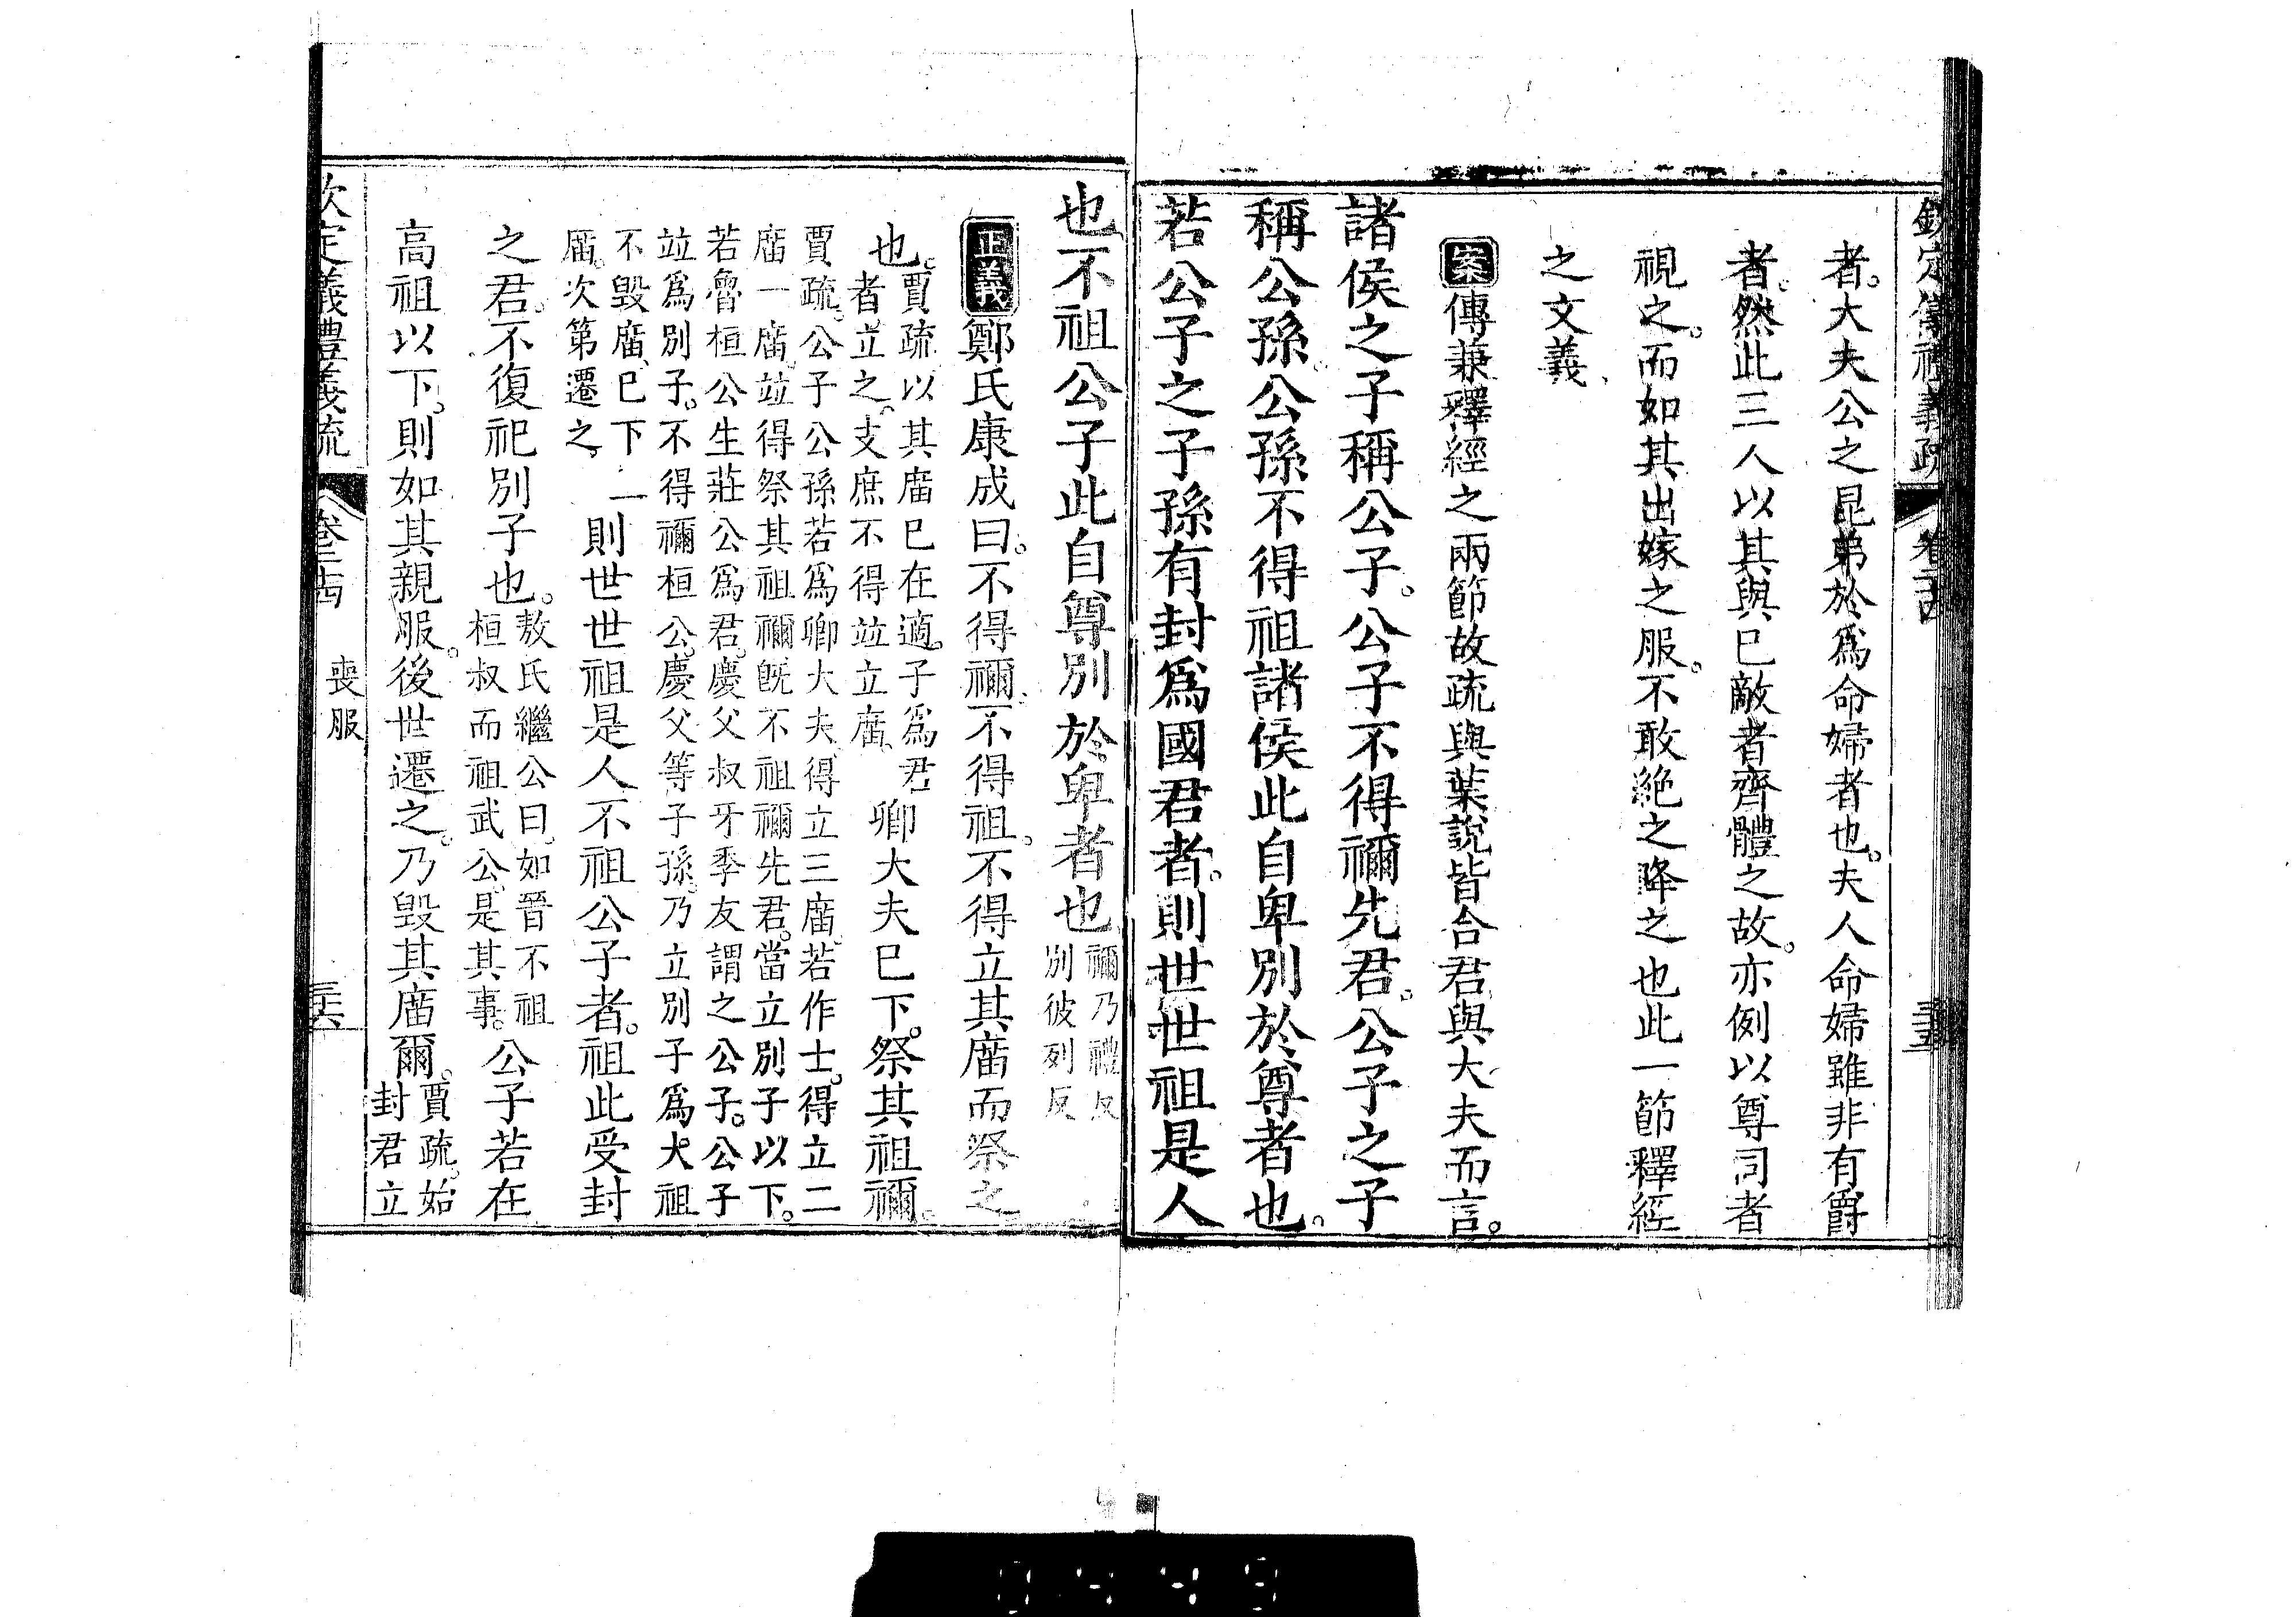 欽定儀禮義疏 卷二十四 三十五
者。大夫公之昆弟於爲命婦者也。夫人命婦雖非有爵
者。然此三人以其與已敵者齊體之故。亦例以尊同者
視之。而如其出嫁之服。不敢絶之降之也此一節釋經
之文義
案傳兼釋經之兩節故疏與葉說皆合君與大夫而言。
諸侯之子稱公子。公子不得禰先君。公子之子
稱公孫。公孫不得祖諸侯此自卑別於尊者也。
若公子之子孫有封爲國君者。則世世祖是人
也不祖公子此自尊別於卑者也禰乃禮反
別彼列反
正義鄭氏康成曰。不得禰不得祖。不得立其廟而祭之
也。賈疏以其廟已在適子爲君
者立之。支庶不得竝立廟。
卿大夫已下。祭其祖禰。
賈疏。公子公孫若爲卿大夫得立三廟。若作士。得立二
廟一廟。竝得祭其祖禰旣不祖禰先君。當立別子以下。
若魯桓公生莊公爲君。慶父叔牙季友謂之公子。公子
竝爲別子。不得禰桓公。慶父等子孫。乃立別子爲大祖
不毀廟、已下一
廟。次第遷之
則世世祖是人不祖公子者。祖此受封
之君。不復祀別子也。敖氏繼公曰。如晉不祖
桓叔而祖武公。是其事。
公子若在
高祖以下。則如其親服。後世遷之。乃毀其廟爾。賈疏。始
封君立
欽定儀禮義疏 卷二十四 喪服 三十六